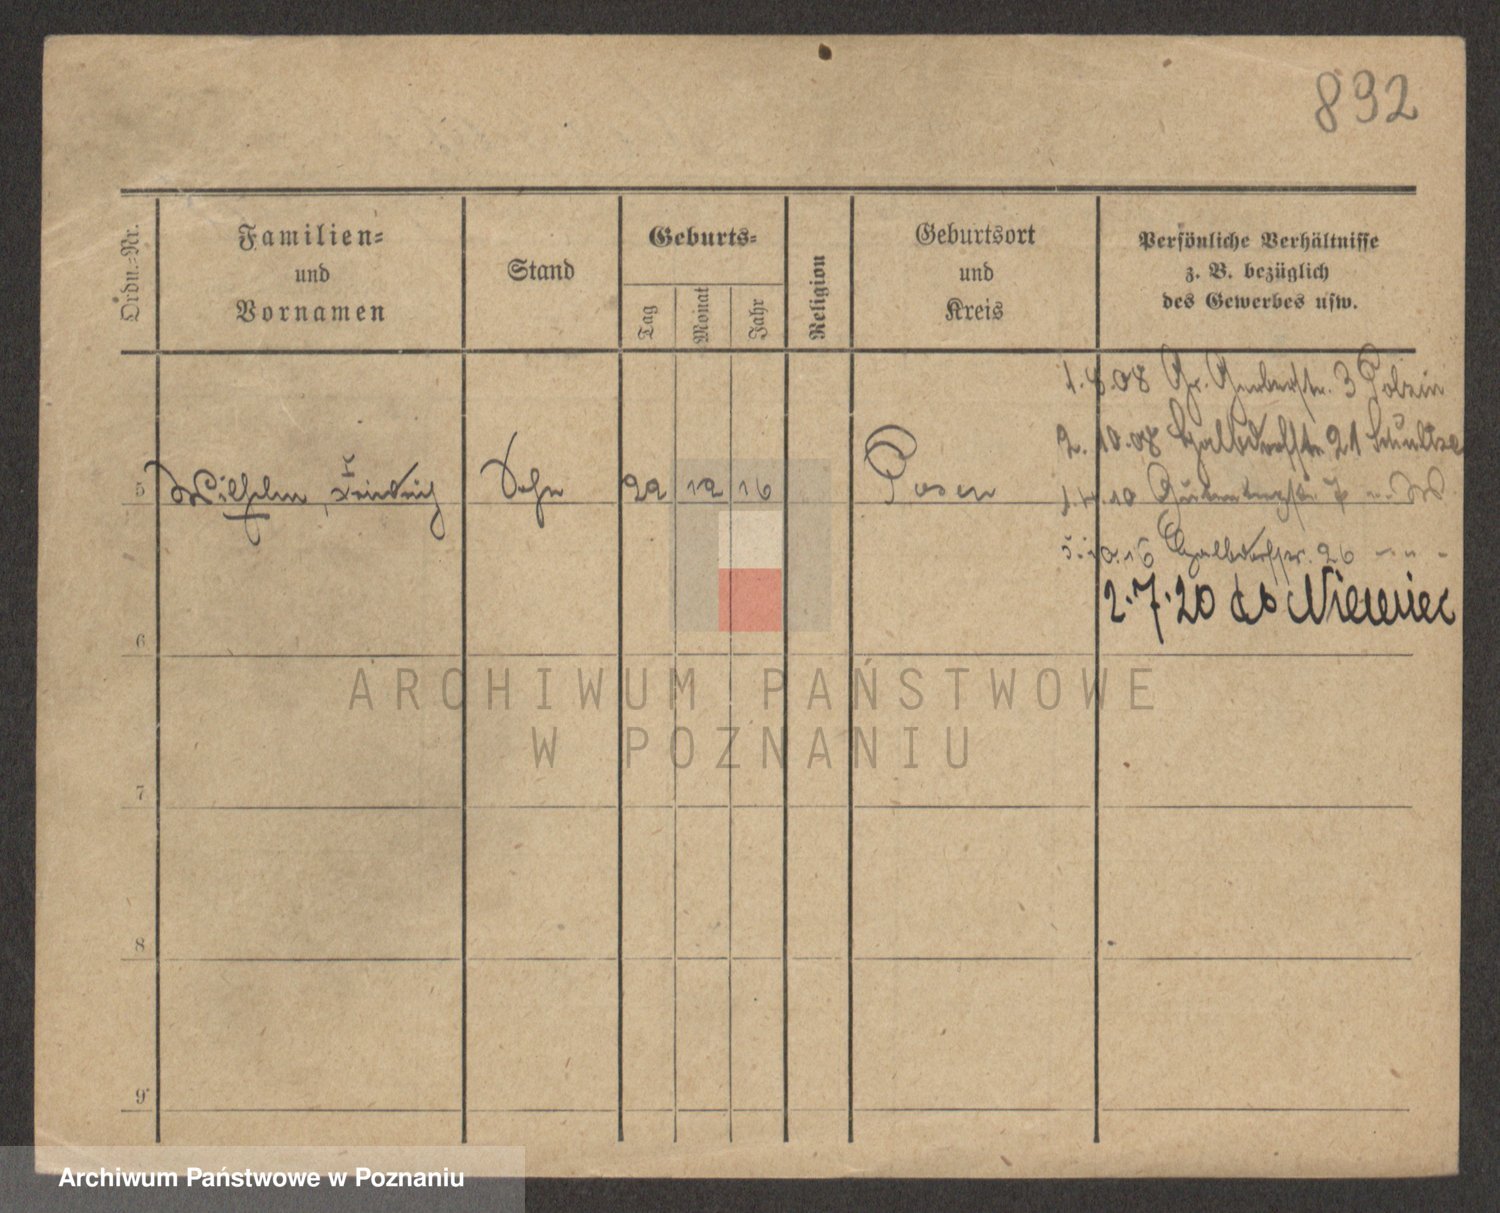 892
Ordn.-Nr.
Familien-
und
Vornamen
Stand
Geburts-
Tag
Monat
Jahr
Religion
Geburtsort
und
Kreis
Persönliche Verhältnisse
z. B. bezüglich
des Gewerbes usw.
1. 8. 08 Gr. Gerberstr. 3
2. 10. 08 Halbdorfstr. 21
5 Wilhelm, Friedrich Sohn 22 12 16 Posen
10
5. 10. 16 Halbdorfstr. 26 - " -
2. 7. 20 do Niemiec
6
ARCHIWUM PAŃSTWOWE
W POZNANIU
7
8
9
Archiwum Państwowe w Poznaniu